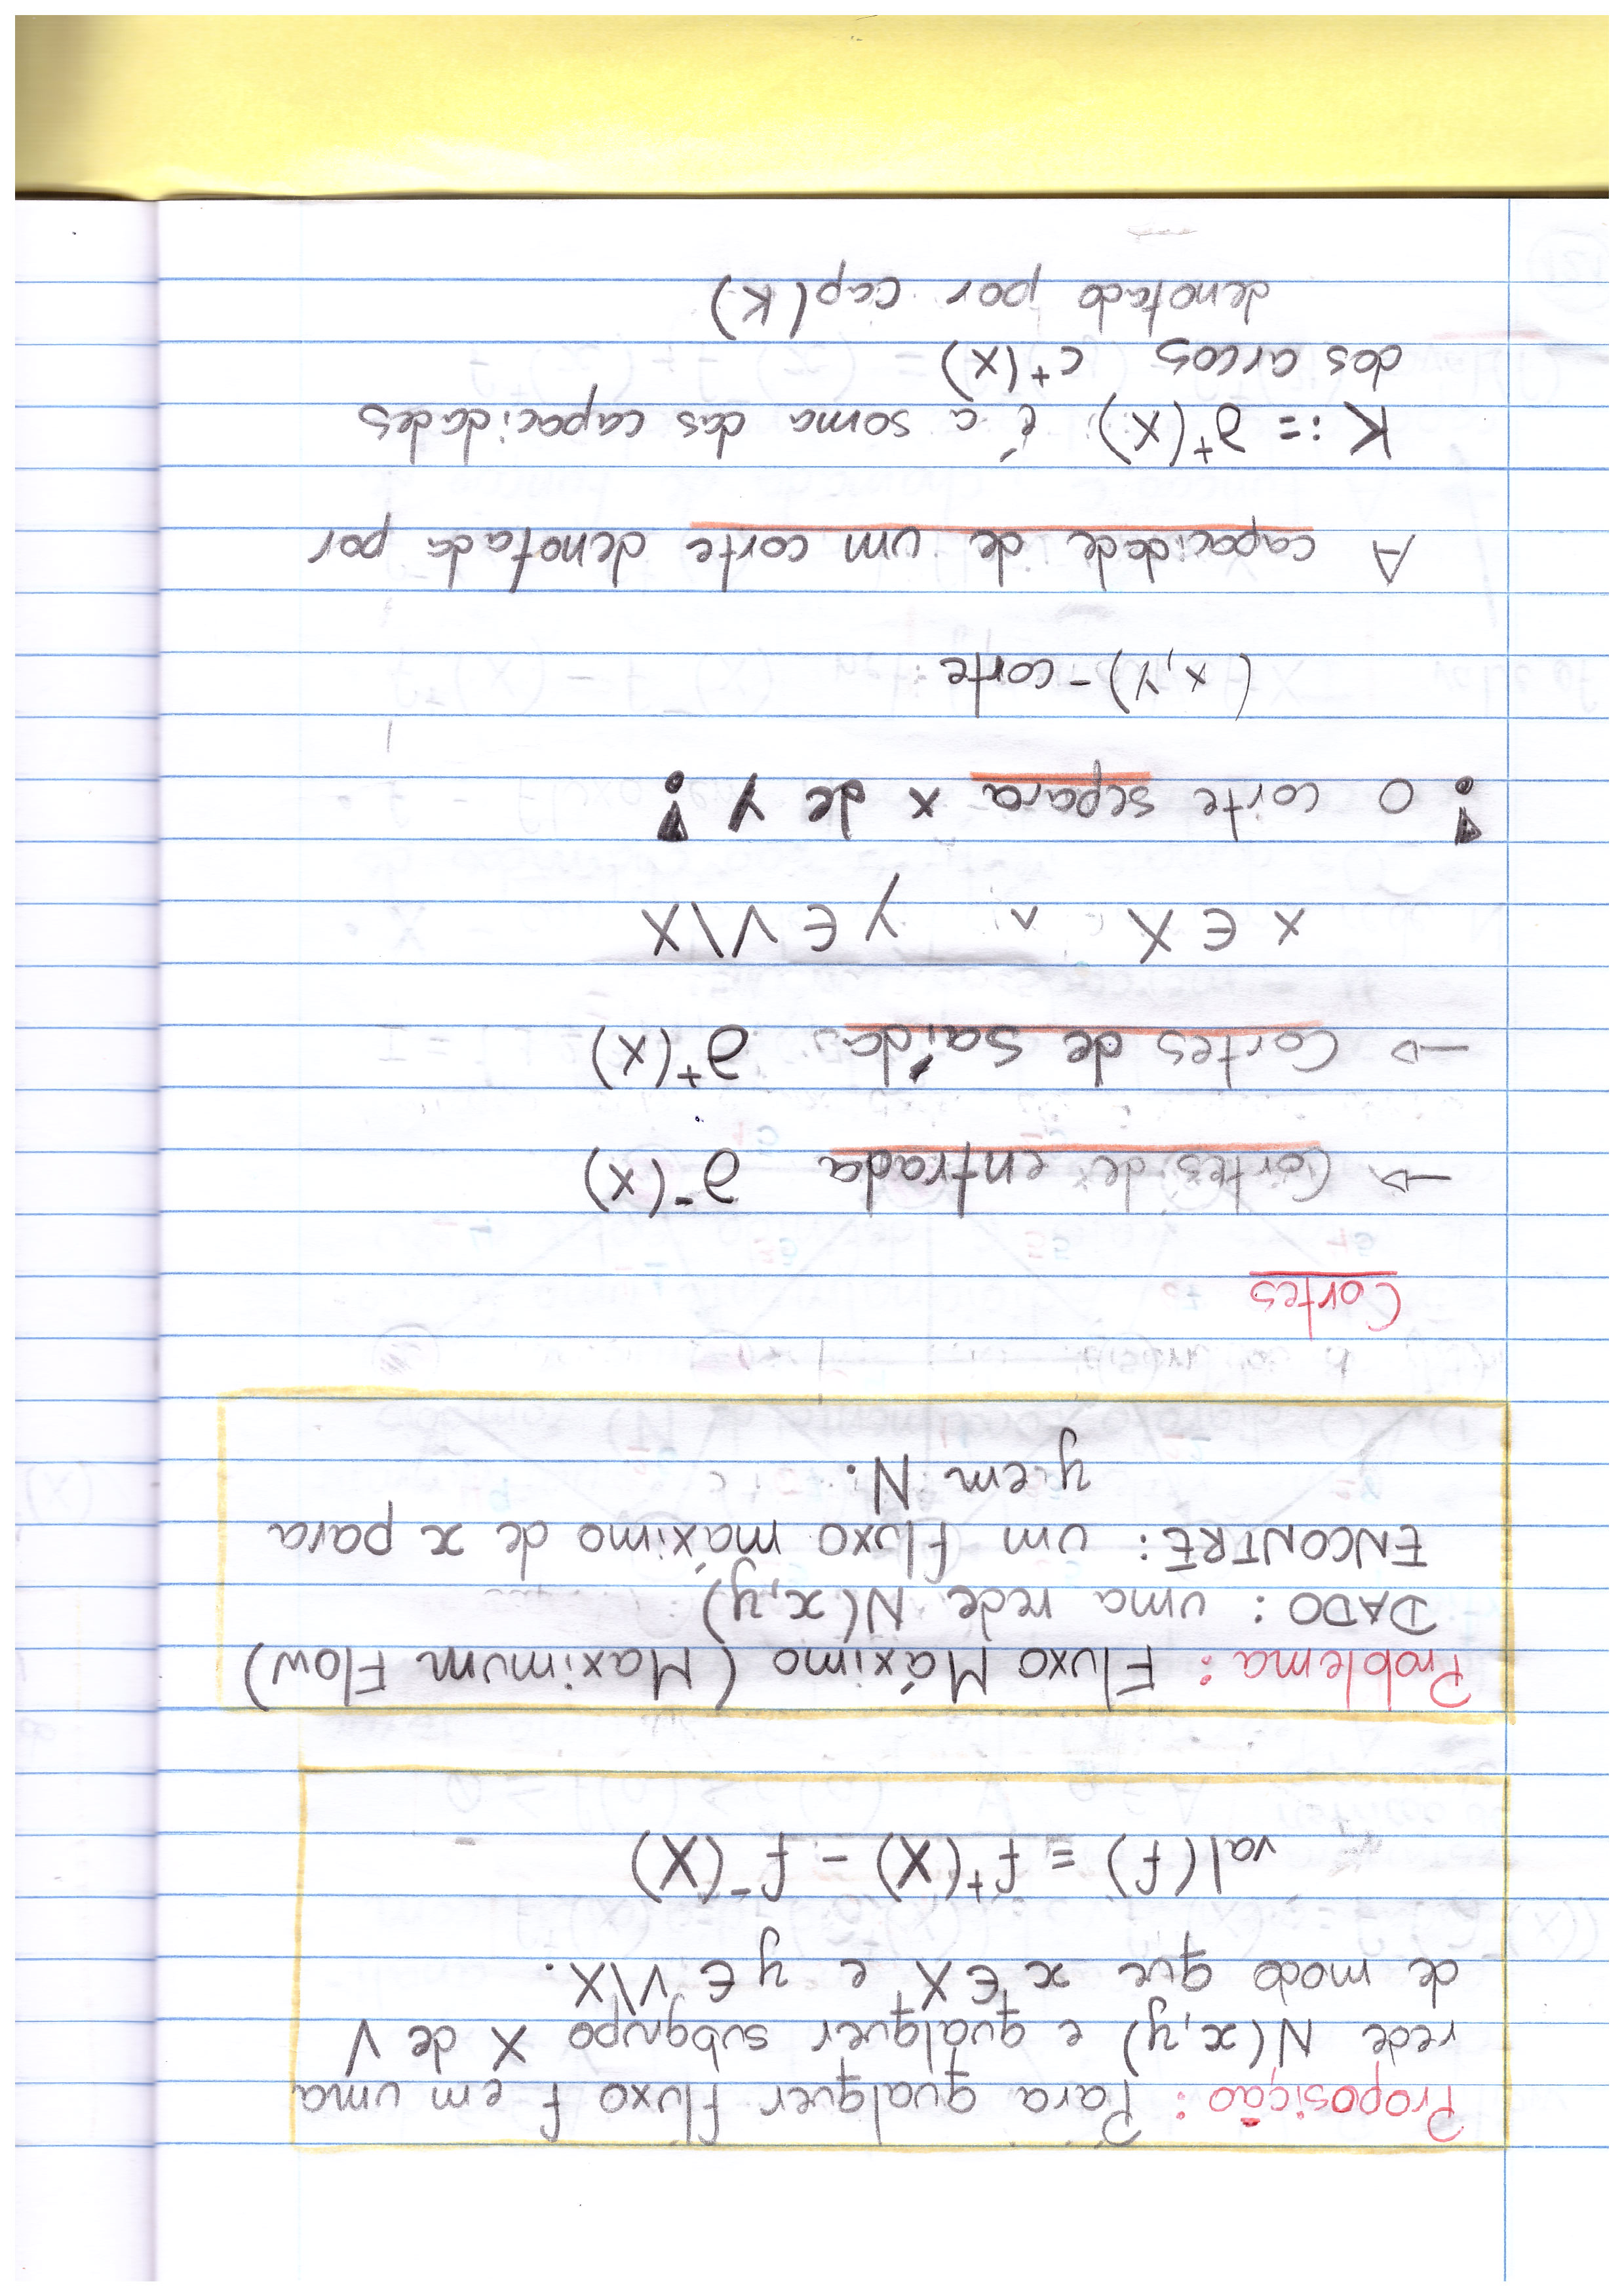 Proposição: Para qualquer fluxo f em uma
rede N(x,y) e qualquer subgrupo X de V
de modo que x ∈ X e y ∈ V\X.
val(f) = f⁺(X) - f⁻(X)
Problema: Fluxo Máximo (Maximum Flow)
DADO: uma rede N(x,y)
ENCONTRE: um fluxo máximo de x para
y em N.
Cortes
→ Cortes de entrada ∂⁻(X)
→ Cortes de saída ∂⁺(X)
x ∈ X ∧ y ∈ V\X
! O corte separa x de y !
(x,y)-corte
A capacidade de um corte denotada por
K := ∂⁺(X) é a soma das capacidades
dos arcos c⁺(X)
denotado por cap(K)